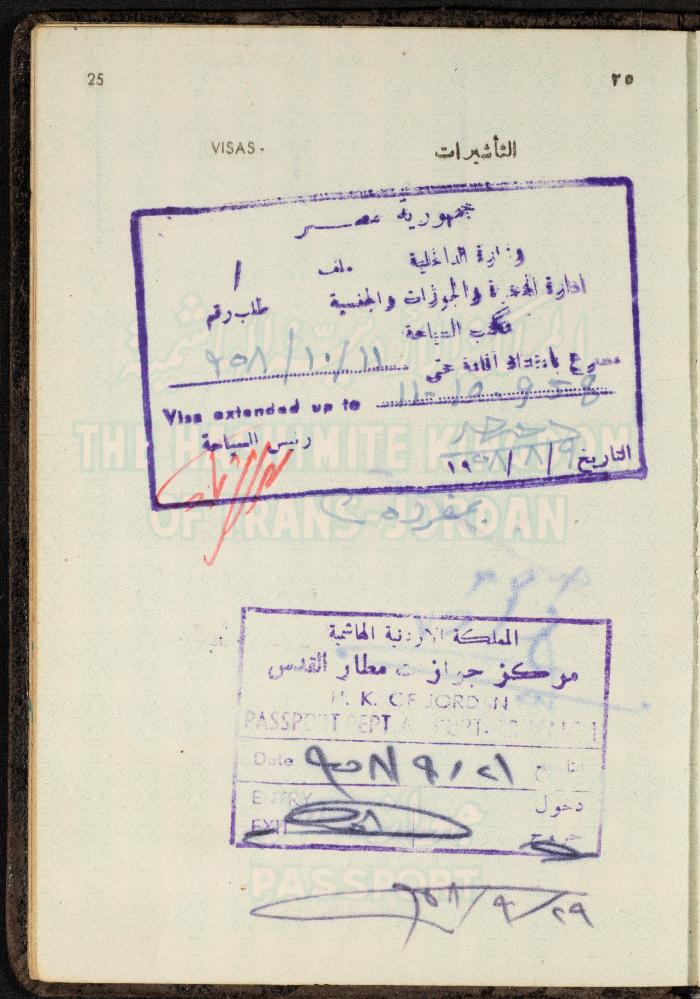 25 ٢٥
VISAS - التأشيرات
جمهورية مصر
وزارة الداخلية
ملف
ادارة الهجرة والجوازات والجنسية
طلب رقم
مكتب السياحة
مصرح بامتداد اقامة حتى ٩٥٨/١٠/١١
Visa extended up to 11-10-958
رئيس السياحة
التاريخ ١٩٥٨/٨/٩
THE HASHIMITE KINGDOM
OF TRANS-JORDAN
بمفرده
المملكة الاردنية الهاشمية
مركز جوازات مطار القدس
H. K. OF JORDAN
PASSPORT DEPT. AIRPORT-JERUSALEM
Date ٩٥٨/٩/٢١ تاريخ
ENTRY دخول
EXIT خروج
PASSPORT
٩٥٨/٩/٢٩